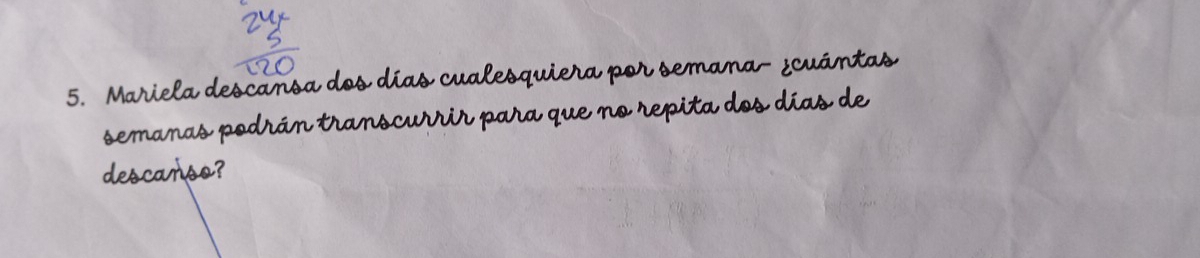 24x
5
120
5. Mariela descansa dos días cualesquiera por semana- ¿cuántas
semanas podrán transcurrir para que no repita dos días de
descanso?